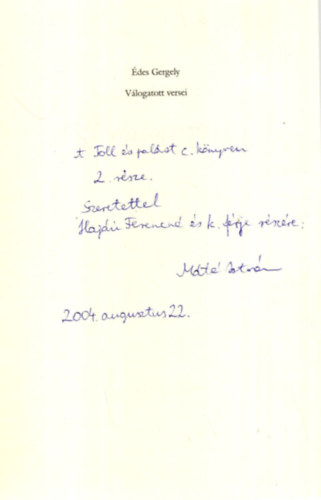 Édes Gergely
Válogatott versei
A Toll és palást c. könyvem
2. része.
Szeretettel
Hajdú Ferencné és k. férje részére:
Máté István
2004. augusztus 22.